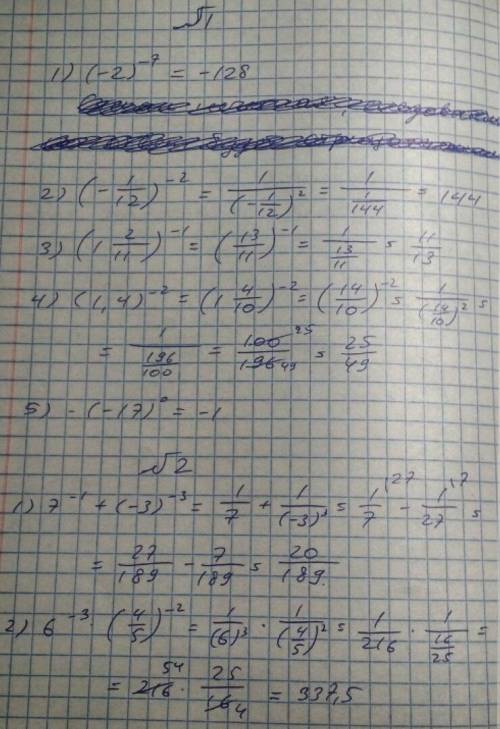 №1
1) (-2)^-7 = -128
2) (-1/12)^-2 = 1/(-1/12)^2 = 1/(1/144) = 144
3) (1 2/11)^-1 = (13/11)^-1 = 1/(13/11) = 11/13
4) (1,4)^-2 = (1 4/10)^-2 = (14/10)^-2 = 1/(14/10)^2 =
= 1/(196/100) = 100 25/196 49 = 25/49
5) -(-17)^0 = -1
№2
1) 7^-1 + (-3)^-3 = 1/7 + 1/(-3)^3 = 1/7 \27 - 1/27 \7 =
= 27/189 - 7/189 = 20/189
2) 6^-3 · (4/5)^-2 = 1/(6)^3 · 1/(4/5)^2 = 1/216 · 1/(16/25) =
= 216 54 · 25/16 4 = 337,5